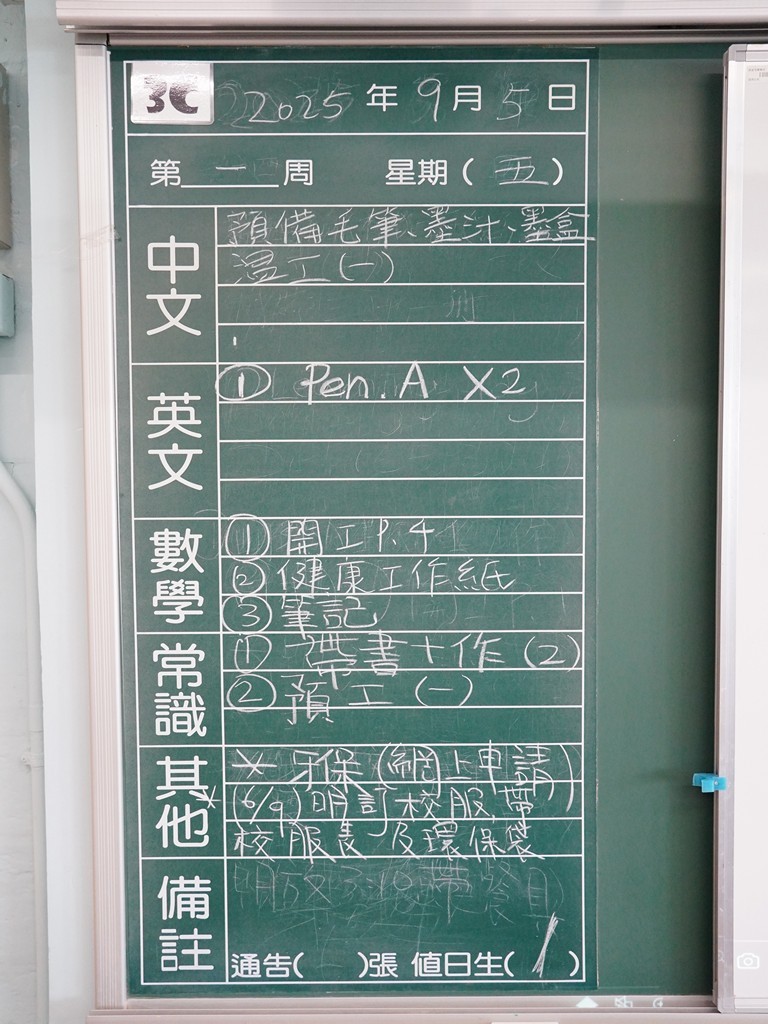 3C 2025 年 9 月 5 日
第 一 周 星期 ( 五 )
中文
預備毛筆、墨汁、墨盒
溫工(一)
英文
① Pen. A X2
數學
① 開工 P. 4
② 健康工作紙
③ 筆記
常識
① 帶書+作(2)
② 預工(一)
其他
* 牙保(網上申請)
*(6/9)明訂校服,帶
校服表及環保袋
備註
通告( )張 值日生( 1 )